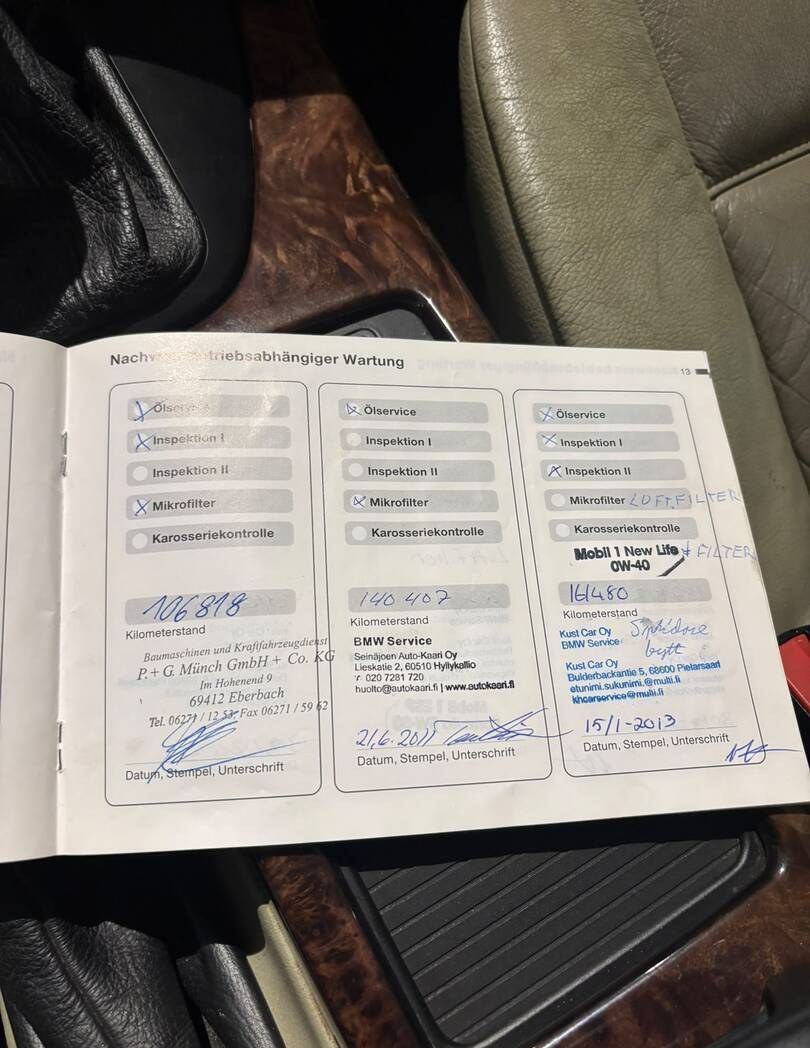 Nachw triebsabhängiger Wartung
13
X Ölservice
X Inspektion I
Inspektion II
X Mikrofilter
Karosseriekontrolle
106818
Kilometerstand
Baumaschinen und Kraftfahrzeugdienst
P. + G. Münch GmbH + Co. KG
Im Hohenend 9
69412 Eberbach
Tel. 06271 / 12 53, Fax 06271 / 59 62
Datum, Stempel, Unterschrift
X Ölservice
Inspektion I
Inspektion II
X Mikrofilter
Karosseriekontrolle
140 407
Kilometerstand
BMW Service
Seinäjoen Auto-Kaari Oy
Lieskatie 2, 60510 Hyllykallio
020 7281 720
huolto@autokaari.fi | www.autokaari.fi
21,6.2011
Datum, Stempel, Unterschrift
X Ölservice
X Inspektion I
X Inspektion II
Mikrofilter LUFTFILTER
Karosseriekontrolle
Mobil 1 New Life + FILTER
0W-40
161480
Kilometerstand
Kust Car Oy
BMW Service
bytt
Kust Car Oy
Bulderbackantie 5, 68600 Pietarsaari
etunimi.sukunimi@multi.fi
khcarservice@multi.fi
15/1-2013
Datum, Stempel, Unterschrift